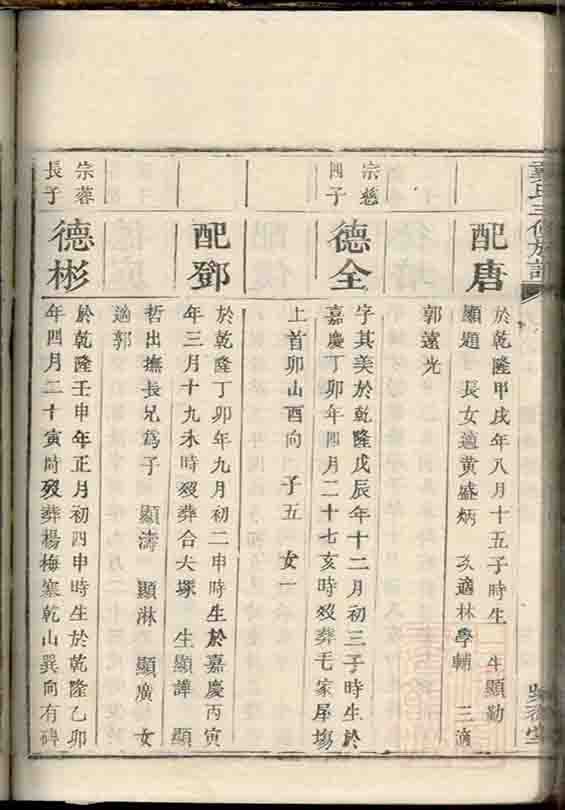 氏三修族譜
配唐
於乾隆甲戌年八月十五子時生 生顯勤
顯題 長女適黃盛炳 次適林學輔 三適
郭遠光
宗慈
四子
德全
字其美於乾隆戊辰年十二月初三子時生於
嘉慶丁卯年四月二十七亥時歿葬毛家犀塲
上首卯山酉向 子五 女一
配鄧
於乾隆丁卯年九月初二申時生於嘉慶丙寅
年三月十九未時歿葬合大塚 生顯譁 顯
哲出撫長兄爲子 顯濤 顯淋 顯廣 女
適郭
宗蓉
長子
德彬
於乾隆壬申年正月初四申時生於乾隆乙卯
年四月二十寅時歿葬楊梅寨乾山巽向有碑